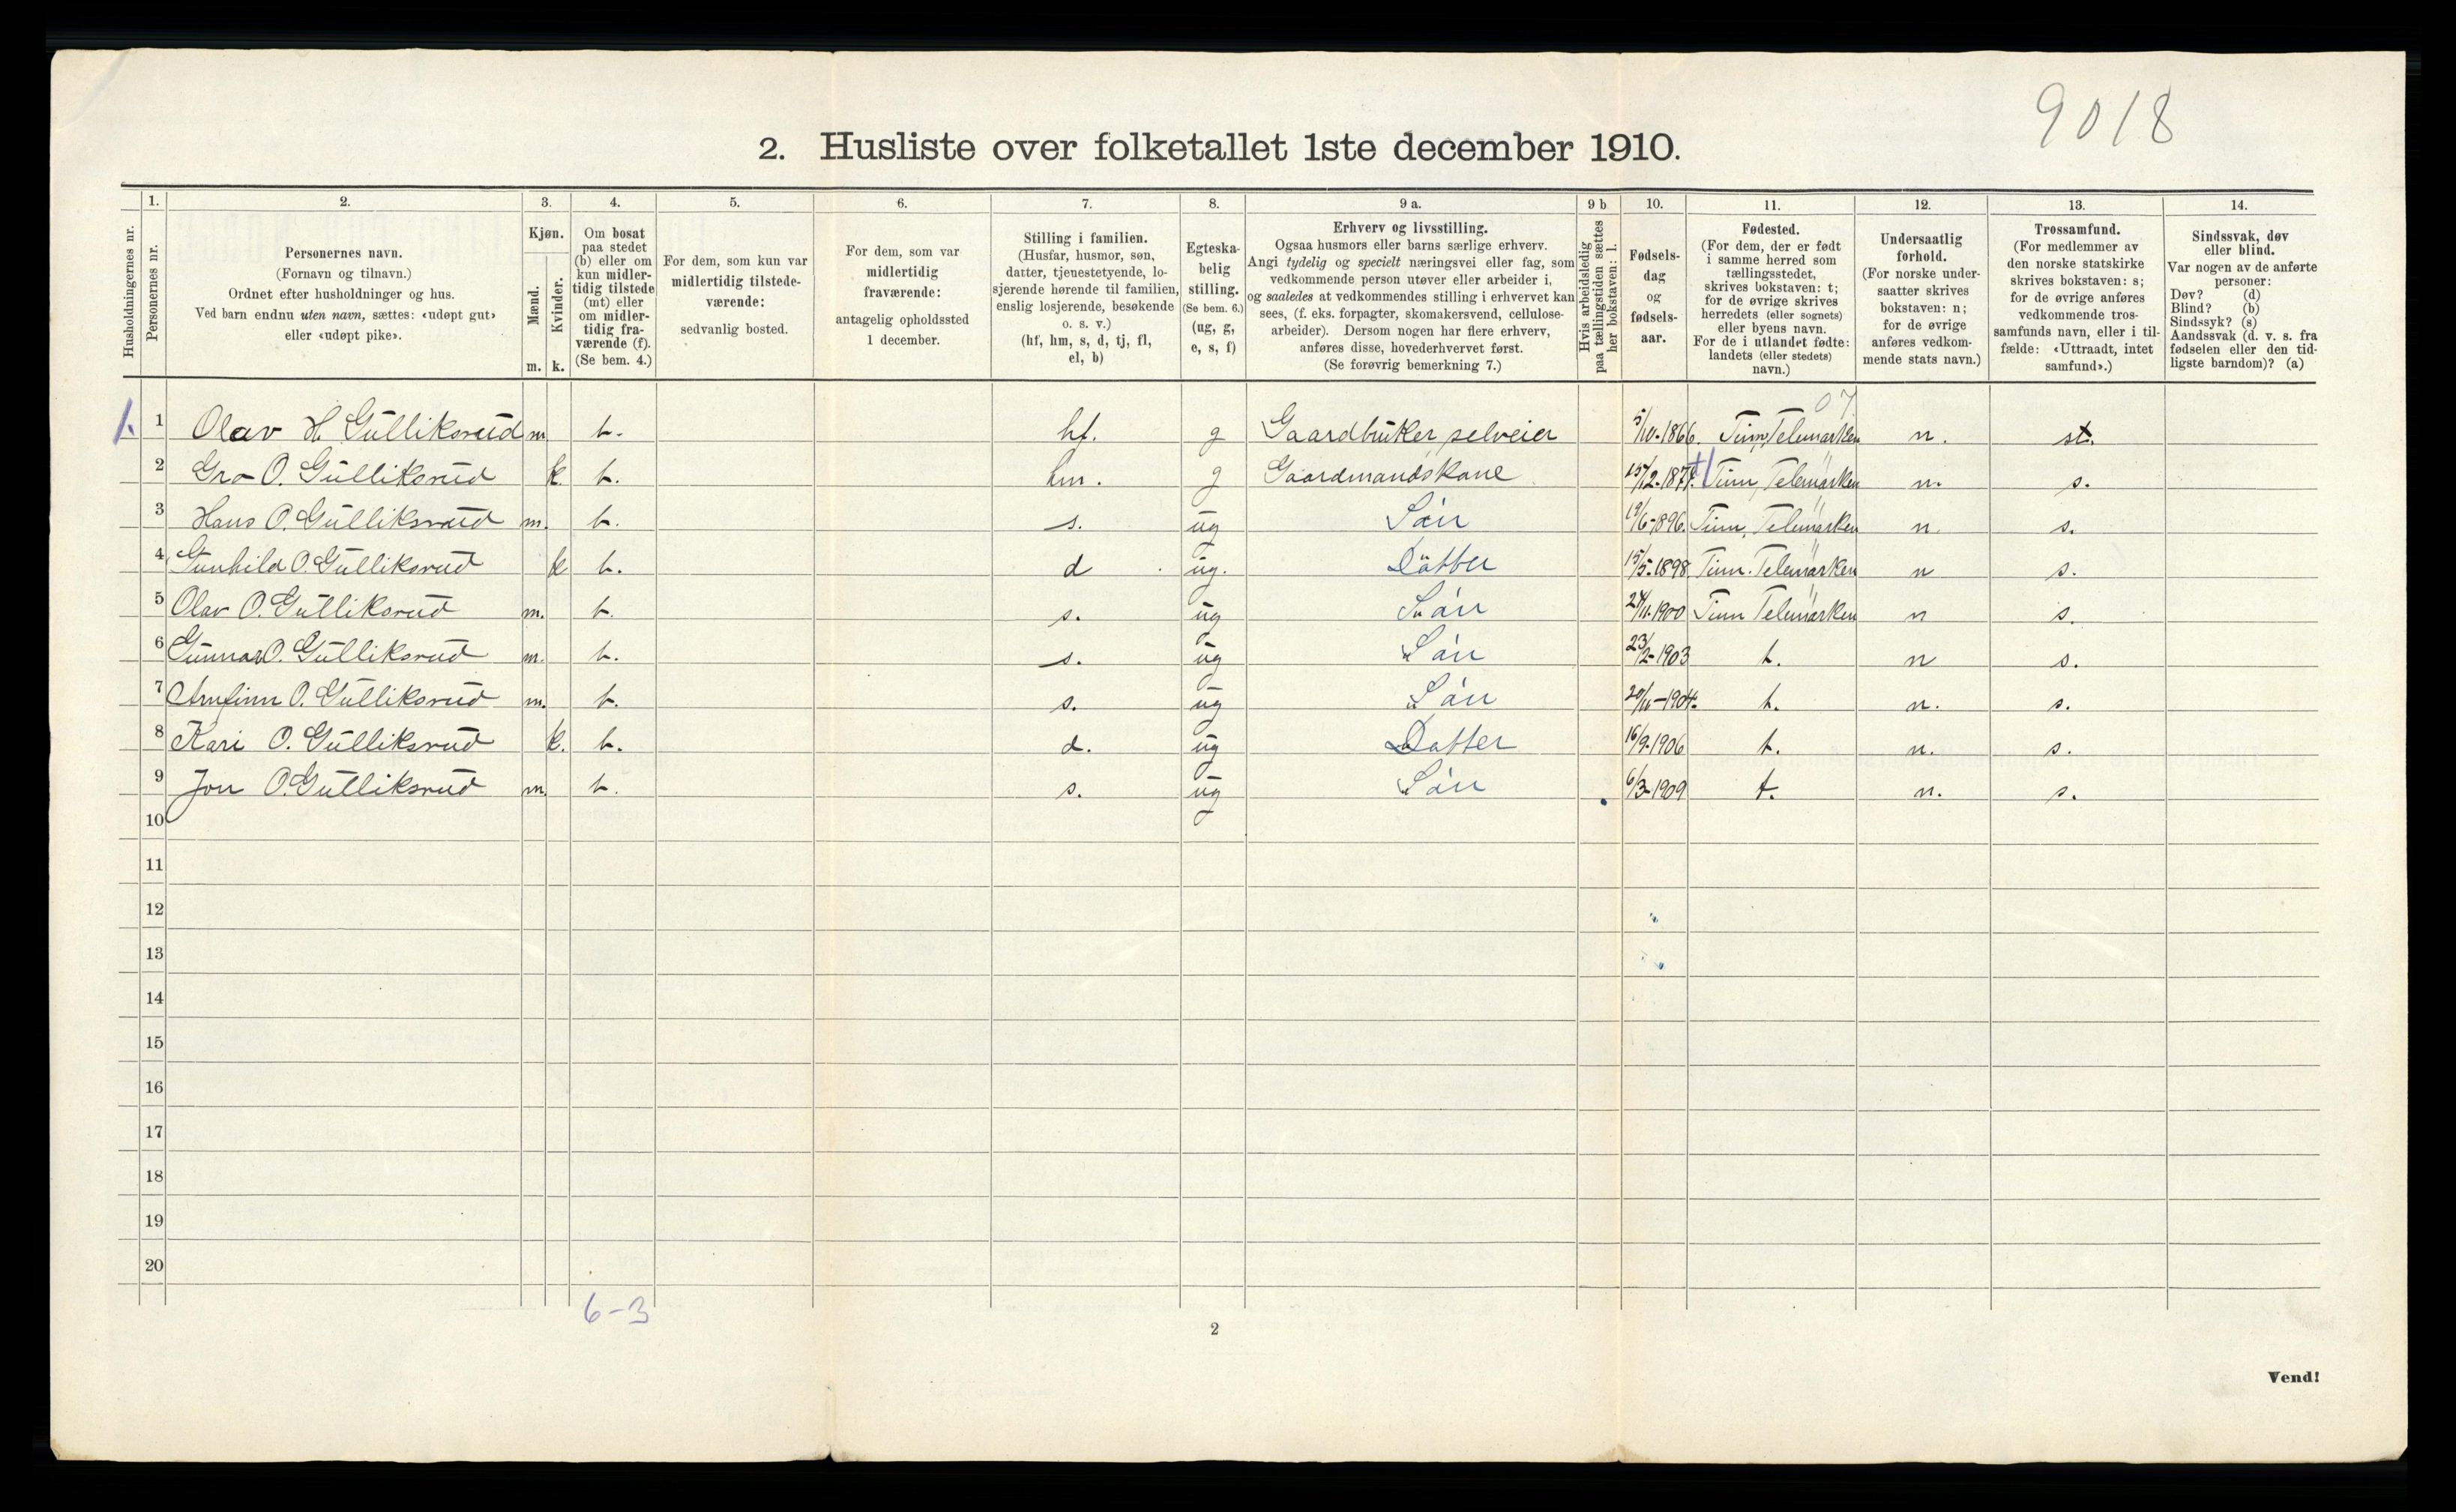 9018
2. Husliste over folketallet 1ste december 1910.
Husholdningernes nr.
1. Personernes nr.
2. Personernes navn.
(Fornavn og tilnavn.)
Ordnet efter husholdninger og hus.
Ved barn endnu uten navn, sættes: «udøpt gut»
eller «udøpt pike».
3. Kjøn.
Mænd. m.
Kvinder. k.
4. Om bosat
paa stedet
(b) eller om
kun midler-
tidig tilstede
(mt) eller
om midler-
tidig fra-
værende (f).
(Se bem. 4.)
5. For dem, som kun var
midlertidig tilstede-
værende:
sedvanlig bosted.
6. For dem, som var
midlertidig
fraværende:
antagelig opholdssted
1 december.
7. Stilling i familien.
(Husfar, husmor, søn,
datter, tjenestetyende, lo-
sjerende hørende til familien,
enslig losjerende, besøkende
o. s. v.)
(hf, hm, s, d, tj, fl,
el, b)
8. Egteska-
belig
stilling.
(Se bem. 6.)
(ug, g,
e, s, f)
9 a. Erhverv og livsstilling.
Ogsaa husmors eller barns særlige erhverv.
Angi tydelig og specielt næringsvei eller fag, som
vedkommende person utøver eller arbeider i,
og saaledes at vedkommendes stilling i erhvervet kan
sees, (f. eks. forpagter, skomakersvend, cellulose-
arbeider). Dersom nogen har flere erhverv,
anføres disse, hovederhvervet først.
(Se forøvrig bemerkning 7.)
9 b Hvis arbeidsledig
paa tællingstiden sættes
her bokstaven: l.
10. Fødsels-
dag
og
fødsels-
aar.
11. Fødested.
(For dem, der er født
i samme herred som
tællingsstedet,
skrives bokstaven: t;
for de øvrige skrives
herredets (eller sognets)
eller byens navn.
For de i utlandet fødte:
landets (eller stedets)
navn.)
12. Undersaatlig
forhold.
(For norske under-
saatter skrives
bokstaven: n;
for de øvrige
anføres vedkom-
mende stats navn.)
13. Trossamfund.
(For medlemmer av
den norske statskirke
skrives bokstaven: s;
for de øvrige anføres
vedkommende tros-
samfunds navn, eller i til-
fælde: «Uttraadt, intet
samfund».)
14. Sindssvak, døv
eller blind.
Var nogen av de anførte
personer:
Døv? (d)
Blind? (b)
Sindssyk? (s)
Aandssvak (d. v. s. fra
fødselen eller den tid-
ligste barndom)? (a)
07
1. 1 Olav H. Gulliksrud m. b. hf. g Gaardbruker, selveier 5/10-1866. Tinn, Telemarken n. st.
2 Gro O. Gulliksrud k. b. hm. g Gaardmandskone Tinn, Telemarken n. s.
3 Hans O. Gulliksrud m. b. s. ug Søn 19/6-1896. Tinn, Telemarken n. s.
4 Gunhild O. Gulliksrud k b. d ug. Datter 15/5-1898 Tinn. Telemarken n s.
5 Olav O. Gulliksrud m. b. s. ug Søn 24/11-1900 Tinn Telemarken n s.
6 Gunnar O. Gulliksrud m. b. s. ug Søn 23/2-1903 t. n s.
7 Arnfinn O. Gulliksrud m. b. s. ug Søn 20/11-1904. t. n. s.
8 Kari O. Gulliksrud k. b. d. ug Datter 16/9-1906 t. n. s.
9 Jon O. Gulliksrud m. b. s. ug Søn 6/3-1909 t. n. s.
10
11
12
13
14
15
16
17
18
19
20
6-3
2
Vend!